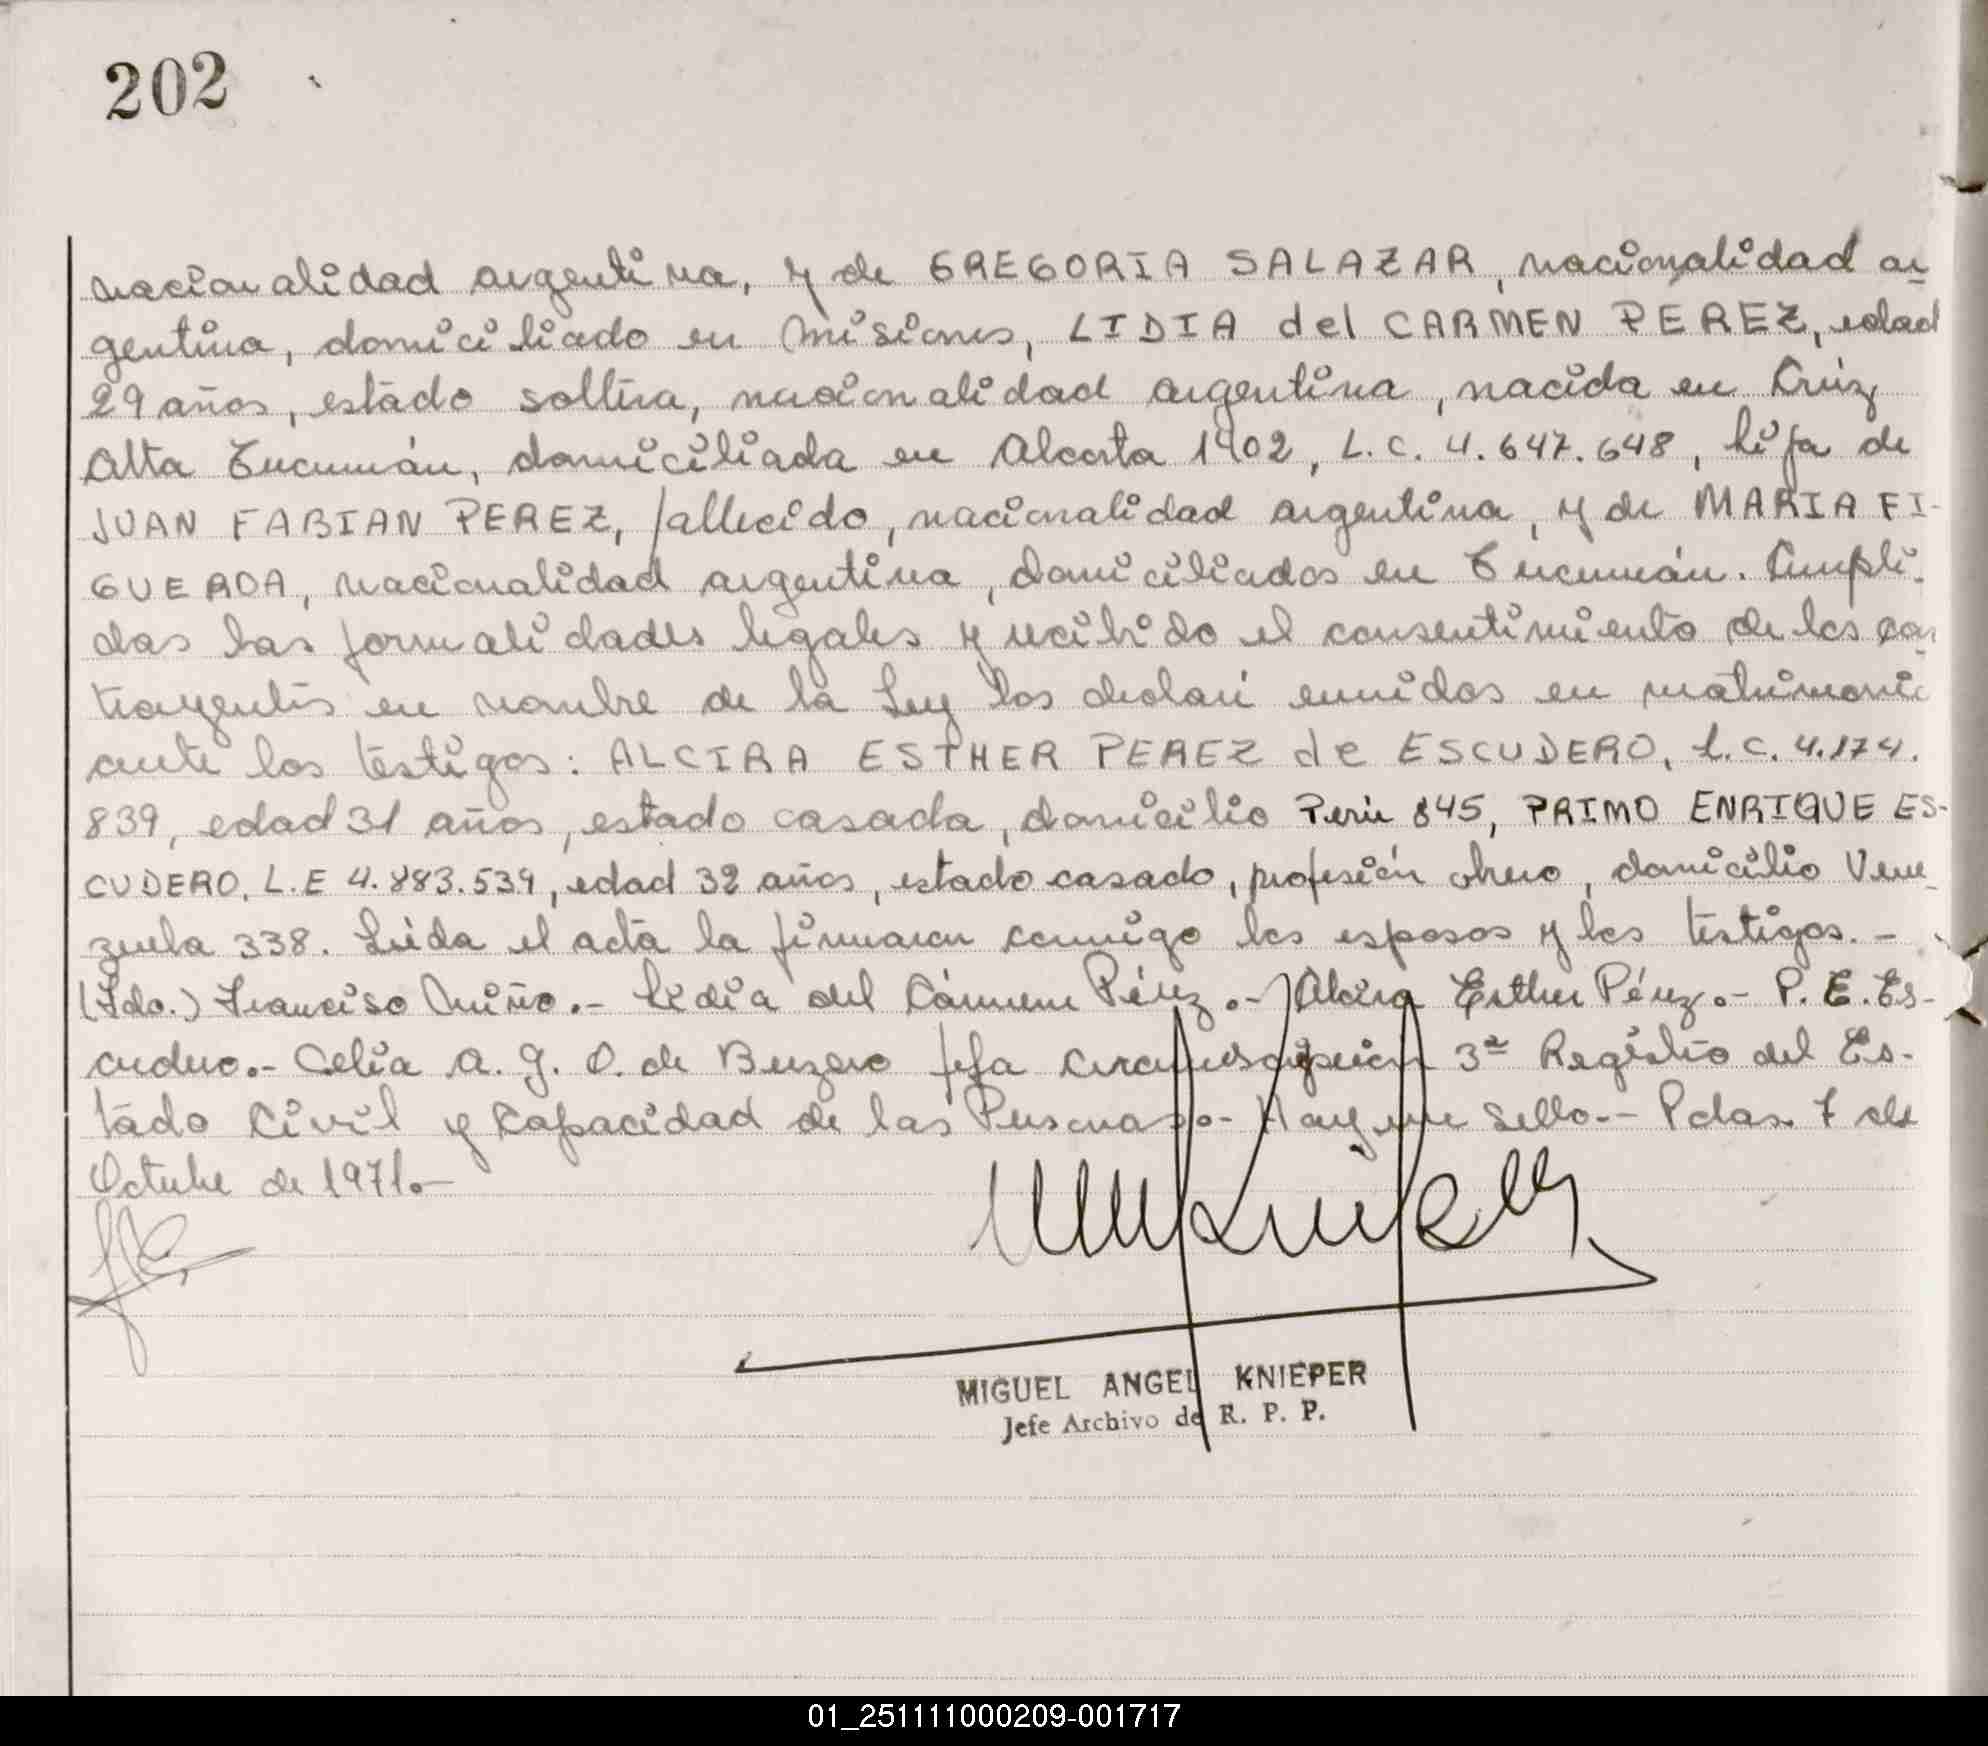 202
nacionalidad argentina, y de GREGORIA SALAZAR, nacionalidad ar
gentina, domiciliado en Misiones, LIDIA del CARMEN PEREZ, edad
29 años, estado soltera, nacionalidad argentina, nacida en Cruz
Alta Tucumán, domiciliada en Alcorta 1402, L.C. 4.647.648, hija de
JUAN FABIAN PEREZ, fallecido, nacionalidad argentina, y de MARIA FI-
GUEROA, nacionalidad argentina, domiciliados en Tucumán. Cumpli-
das las formalidades legales y recibido el consentimiento de los con
trayentes en nombre de la Ley los declaré unidos en matrimonio
ante los testigos: ALCIRA ESTHER PEREZ de ESCUDERO, L.C. 4.174.
839, edad 31 años, estado casada, domicilio Perú 845, PRIMO ENRIQUE ES-
CUDERO, L.E 4.883.539, edad 32 años, estado casado, profesión obrero, domicilio Vene-
zuela 338. Leída el acta la firmaron conmigo los esposos y los testigos.-
(Fdo.) Franciso Miño.- Lidia del Cármen Pérez.- Alcira Esther Pérez.- P. E. Es-
cudero.- Celia A. G. O. de Buzero Jefa Circunscripción 3ª Registro del Es-
tado Civil y Capacidad de las Personas.- Hay un sello.- Pdas. 7 de
Octubre de 1971.-
MIGUEL ANGEL KNIEPER
Jefe Archivo de R. P. P.
01_251111000209-001717